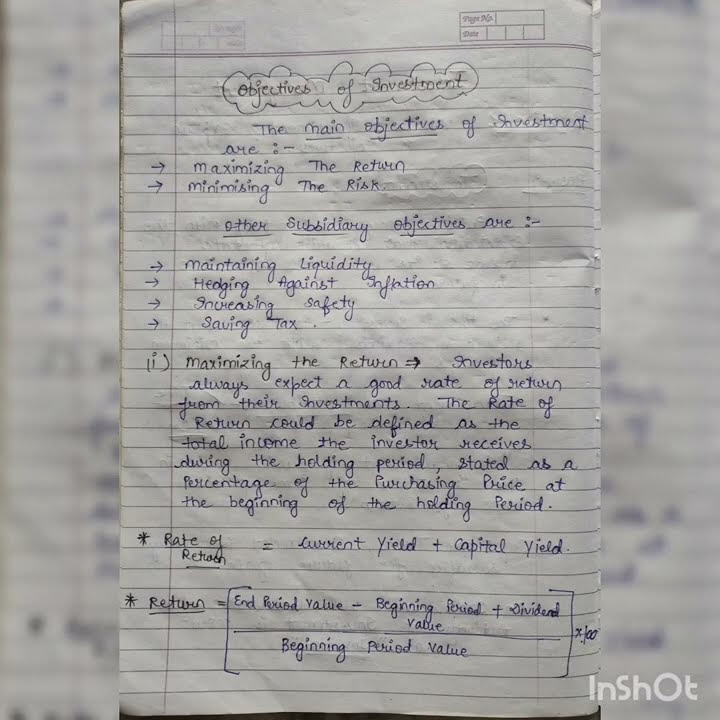 Page No.
Date
Objectives of Investment
The main objectives of Investment
are :-
→ Maximizing The Return
→ Minimising The Risk.
Other Subsidiary objectives are :-
→ Maintaining Liquidity
→ Hedging Against Inflation
→ Increasing Safety
→ Saving Tax.
(i) Maximizing the Return ⇒ Investors
always expect a good rate of return
from their Investments. The Rate of
Return could be defined as the
total income the investor receives
during the holding period, stated as a
Percentage of the Purchasing Price at
the beginning of the holding Period.
* Rate of = Current Yield + Capital Yield.
Return
* Return = [End Period Value - Beginning Period + Dividend
Value
Beginning Period Value] × 100
InShOt